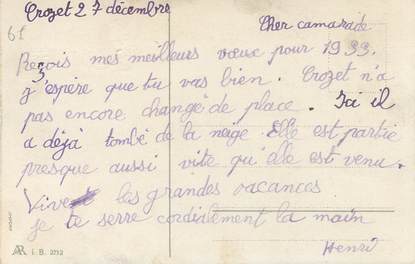 Crozet 27 décembre
Cher camarade
61
Reçois mes meilleurs vœux pour 1933.
J'espère que tu vas bien. Crozet n'a
pas encore changé de place. Ici il
a déjà tombé de la neige. Elle est partie
presque aussi vite qu'elle est venu.
Vivent les grandes vacances.
je te serre cordialement la main
Henri
AR I. B. 2712